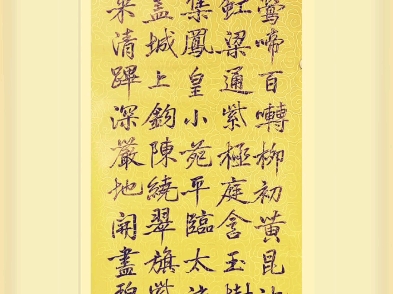 鶯啼百囀柳初黃昆
虹梁通紫極庭含玉樹
集鳳皇小苑平臨太液
蓋城上鈎陳繞翠旗
采清蹕深嚴地開盡